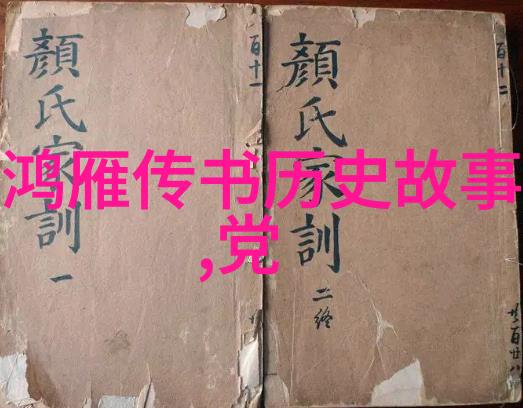 顏氏家訓一
顏氏家訓二终
鸿雁传书历史故事
,党
百十一
百十二